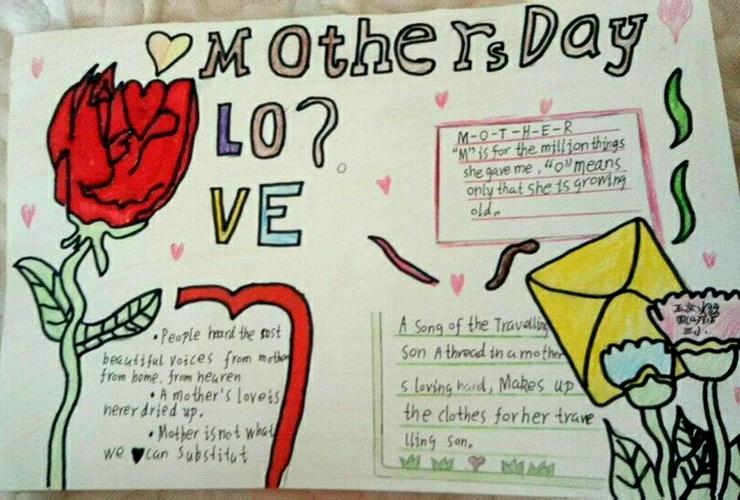 Mothers Day
LO?
VE
M-O-T-H-E-R
"M" is for the million things
she gave me, "O" means
only that she is growing
old.
• People heard the
beautiful voices from mothe
from home, from heaven
• A mother's love is
never dried up.
• Mother is not what
we can Substitut
A Song of the Travelling
Son A thread in a mother
s loving hand, Makes up
the clothes for her trave
lling son.